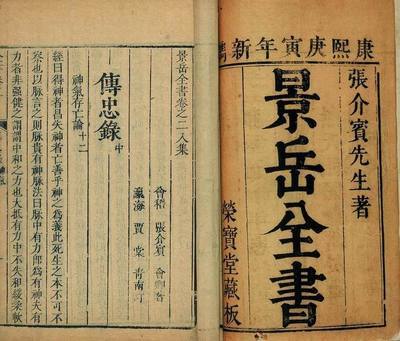 康熙庚寅年新鐫
張介賓先生著
景岳全書
榮寶堂藏板
景岳全書卷之二入集
會稽 張介賓 會卿著
瀛海 賈棠 青南訂
傳忠錄中
神氣存亡論十二
經曰得神者昌失神者亡善乎神之為義此死生之本不可不
察也以脉言之則脉貴有神脉法曰脉中有力卽為有神夫有
力者非强健之謂謂中和之力也大抵有力中不失和緩柔軟